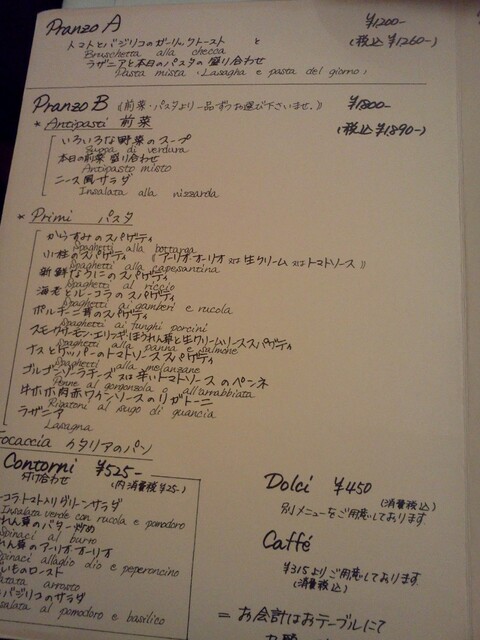 Pranzo A ¥1200-
トマトとバジリコのガーリックトースト と (税込 ¥1260-)
Bruschetta alla checca
ラザニアと本日のパスタの盛り合わせ
Pasta mista (Lasagna e pasta del giorno)
Pranzo B 《前菜・パスタより一品ずつお選び下さいませ。》 ¥1800-
* Antipasti 前菜 (税込 ¥1890-)
いろいろな野菜のスープ
Zuppa di verdura
本日の前菜 盛り合わせ
Antipasto misto
ニース風サラダ
Insalata alla nizzarda
* Primi パスタ
からすみのスパゲティ
Spaghetti alla bottarga
小柱のスパゲティ 《アーリオ・オーリオ 又は 生クリーム 又は トマトソース》
Spaghetti alla capesantina
新鮮なうにのスパゲティ
Spaghetti al riccio
海老とルーコラのスパゲティ
Spaghetti ai gamberi e rucola
ポルチーニ茸のスパゲティ
Spaghetti ai funghi porcini
スモークサーモン・エリンギ・ほうれん草と生クリームソーススパゲティ
Spaghetti alla panna e salmone
ナスとケッパーのトマトソーススパゲティ
Spaghetti alla melanzane
ゴルゴンゾーラチーズ 又は 辛いトマトソースのペンネ
Penne al gorgonzola o all'arrabbiata
牛ホホ肉赤ワインソースのリガトーニ
Rigatoni al sugo di guancia
ラザニア
Lasagna
Focaccia イタリアのパン
Contorni ¥525-
付け合わせ (内消費税¥25-)
コラトマト入りグリーンサラダ
Insalata verde con rucola e pomodoro
れん草のバター炒め
Spinaci al burro
れん草のアーリオ・オーリオ
Spinaci all'aglio olio e peperoncino
いものロースト
Patata arrosto
バジリコのサラダ
Insalata al pomodoro e basilico
Dolci ¥450
(消費税込)
別メニューをご用意しております
Caffé
¥315よりご用意しております。
(消費税込)
= お会計はおテーブルにて